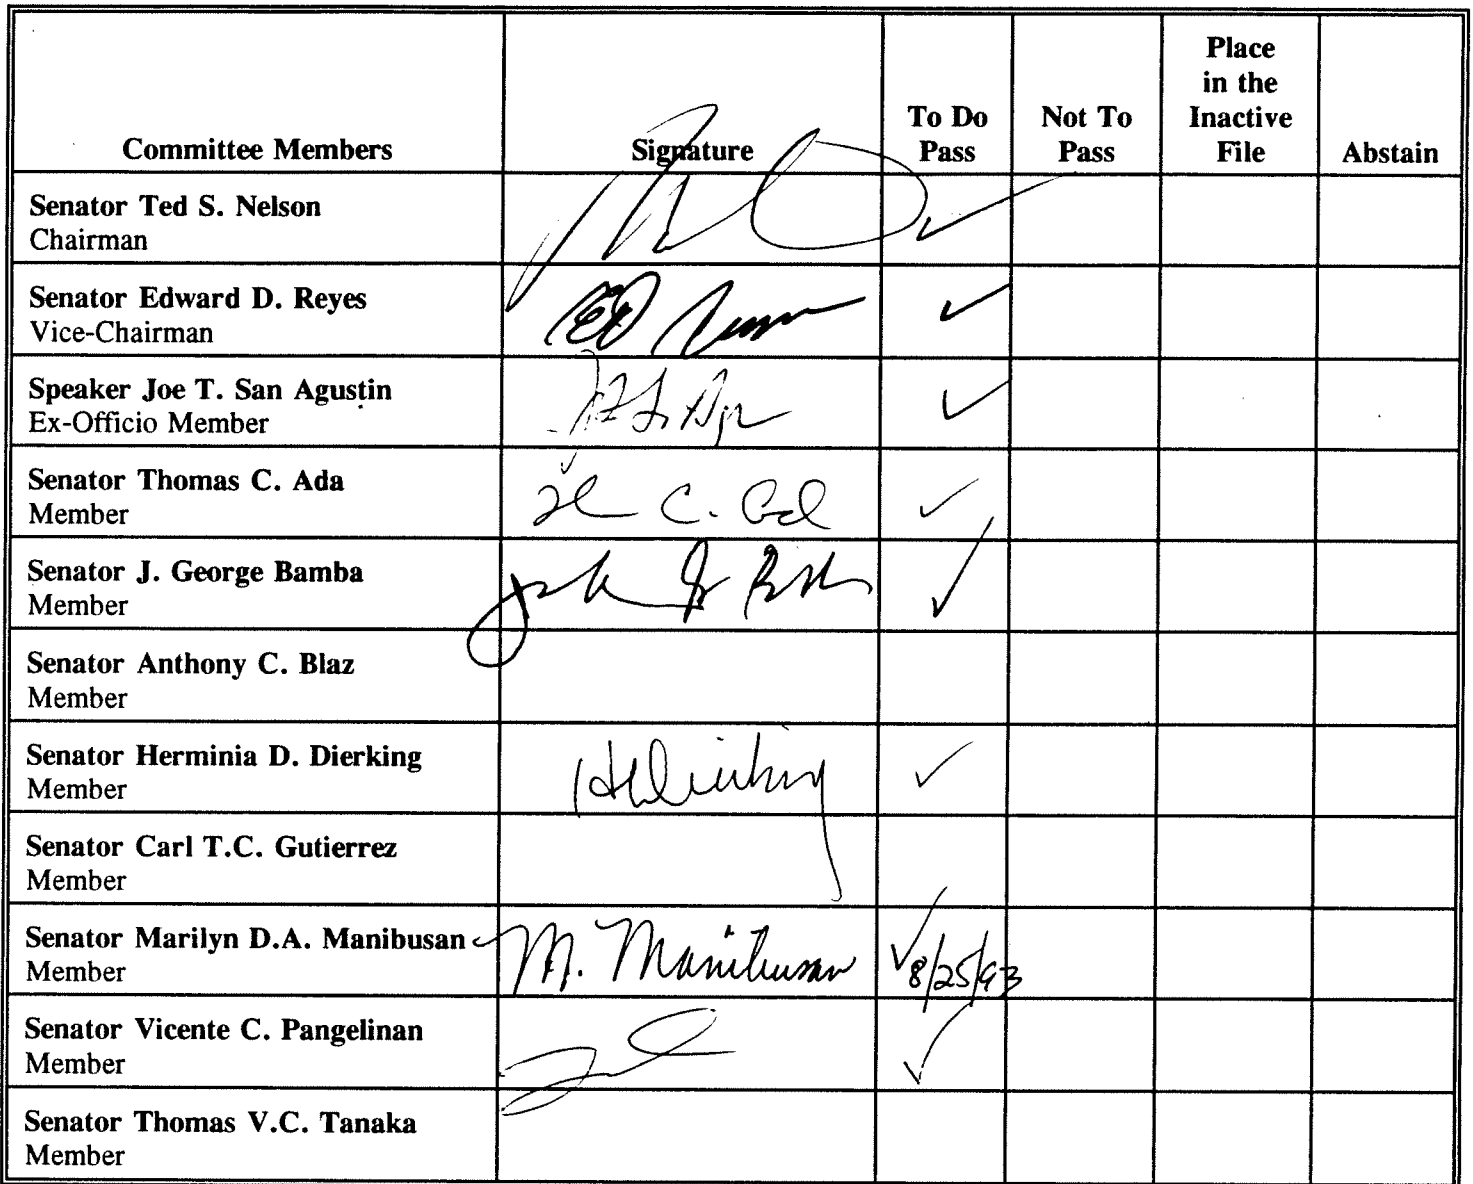 Committee Members
Signature
To Do
Pass
Not To
Pass
Place
in the
Inactive
File
Abstain
Senator Ted S. Nelson
Chairman
Senator Edward D. Reyes
Vice-Chairman
Speaker Joe T. San Agustin
Ex-Officio Member
Senator Thomas C. Ada
Member
Senator J. George Bamba
Member
Senator Anthony C. Blaz
Member
Senator Herminia D. Dierking
Member
HDierking
Senator Carl T.C. Gutierrez
Member
Senator Marilyn D.A. Manibusan
Member
M. Manibusan
8/25/93
Senator Vicente C. Pangelinan
Member
Senator Thomas V.C. Tanaka
Member